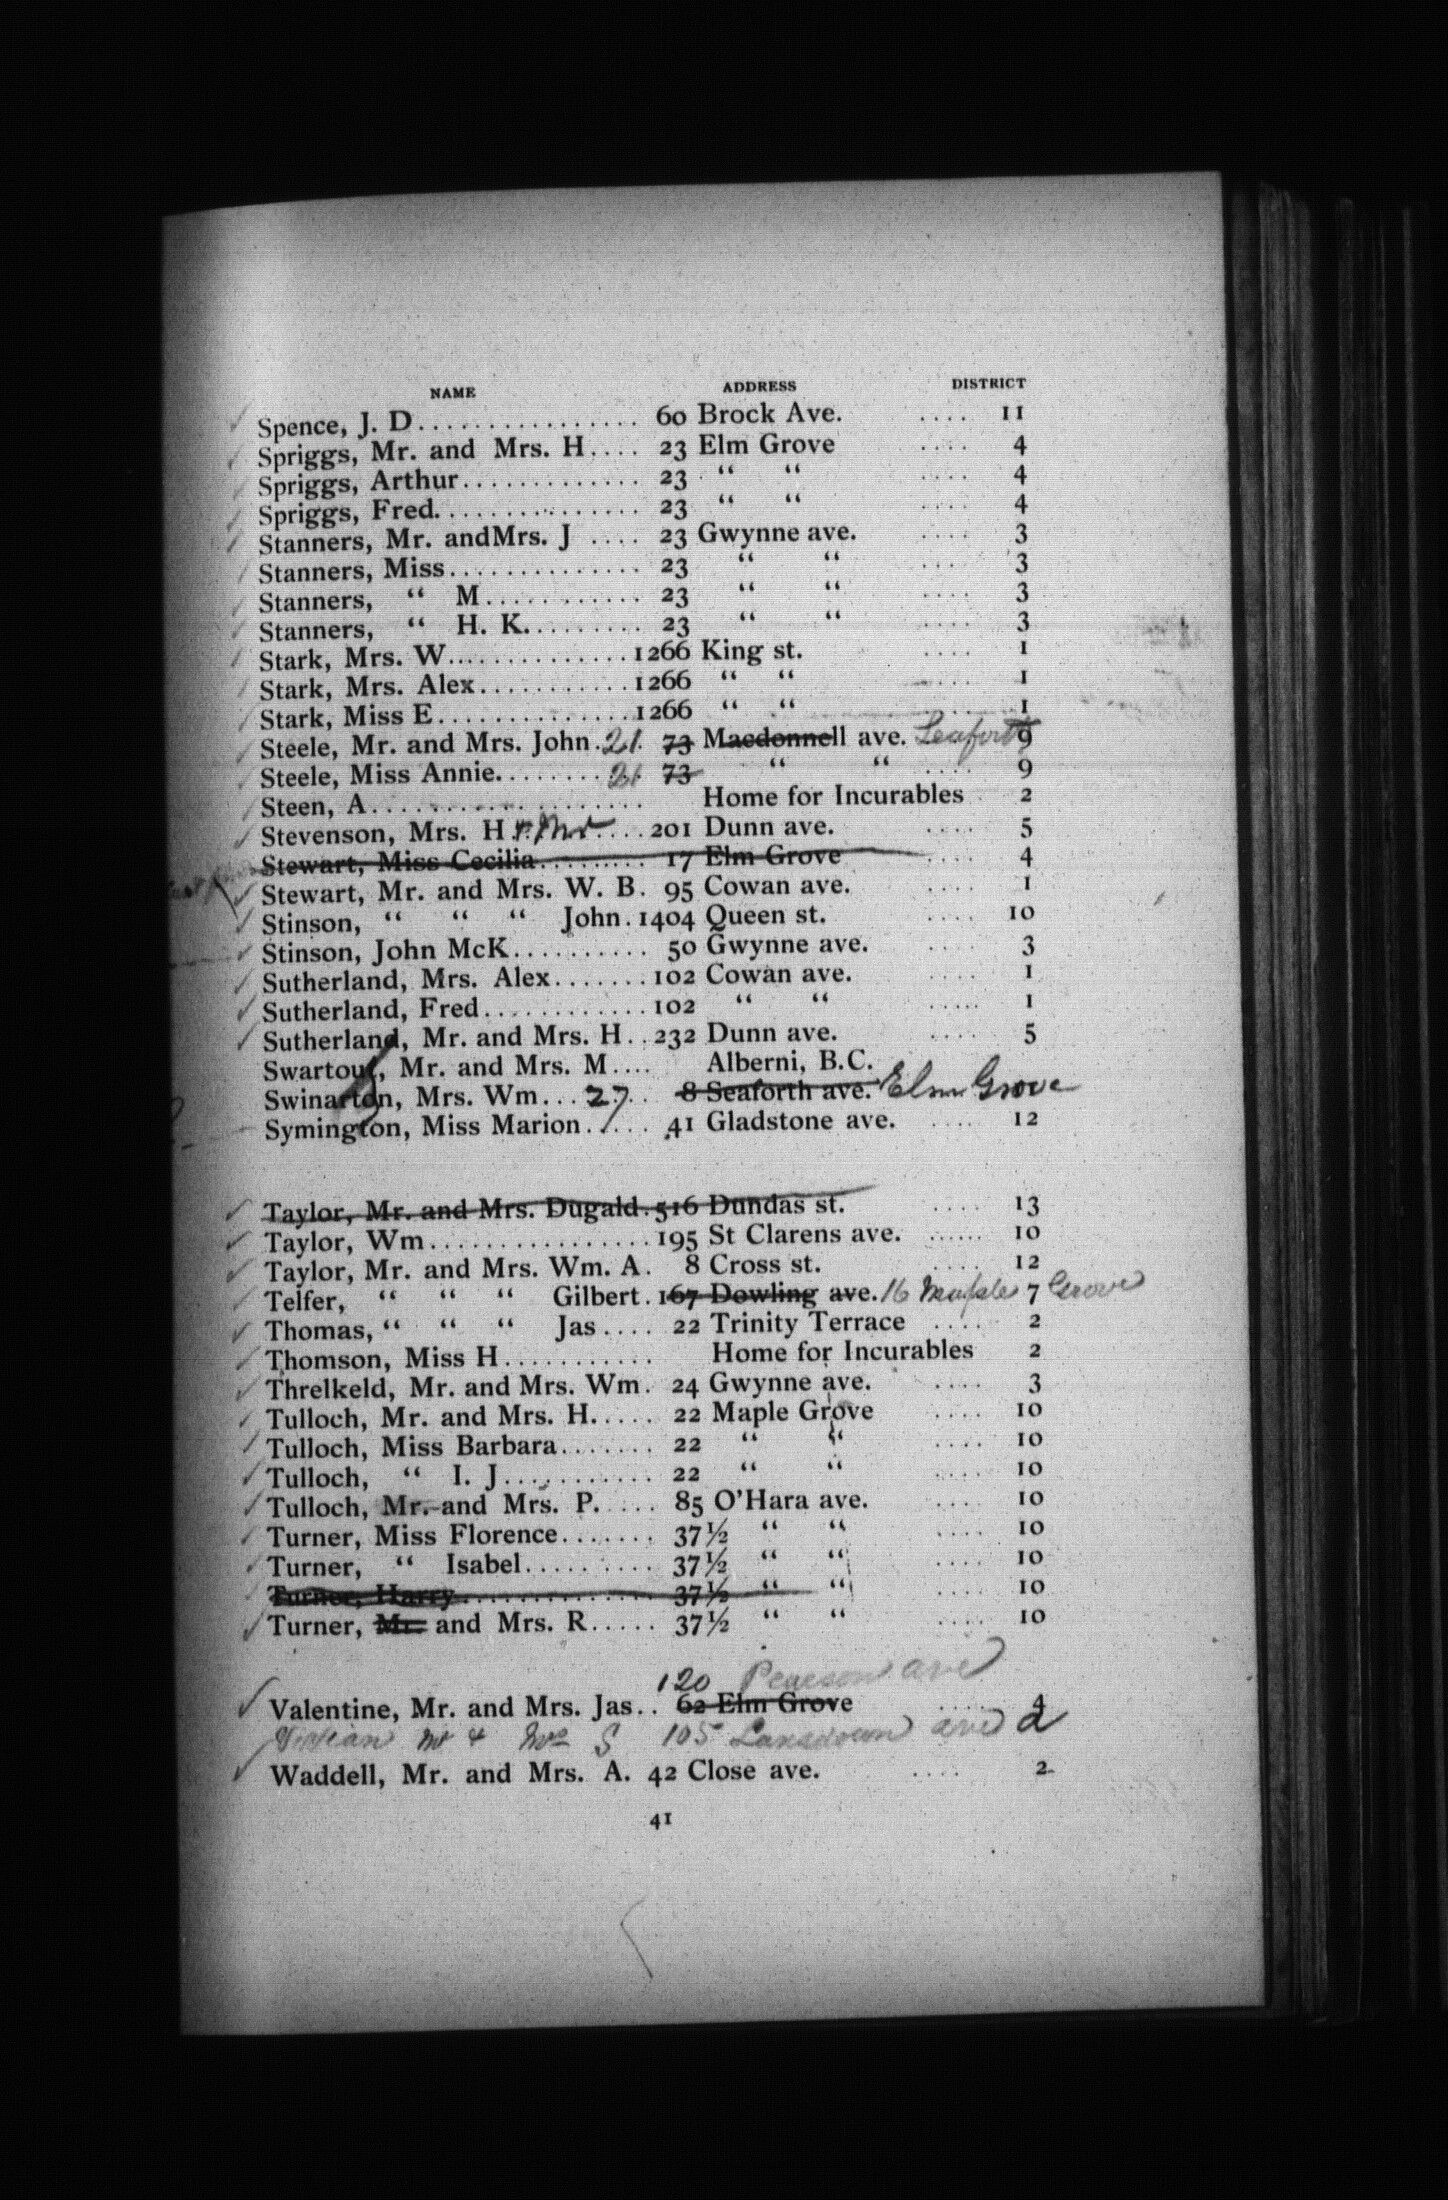 NAME ADDRESS DISTRICT
Spence, J. D................ 60 Brock Ave. .... 11
Spriggs, Mr. and Mrs. H.... 23 Elm Grove .... 4
Spriggs, Arthur............. 23 “ “ .... 4
Spriggs, Fred............... 23 “ “ .... 4
Stanners, Mr. andMrs. J .... 23 Gwynne ave. .... 3
Stanners, Miss.............. 23 “ “ .... 3
Stanners, “ M........... 23 “ “ .... 3
Stanners, “ H. K......... 23 “ “ .... 3
Stark, Mrs. W.............. 1266 King st. .... 1
Stark, Mrs. Alex........... 1266 “ “ .... 1
Stark, Miss E.............. 1266 “ “ .... 1
Steele, Mr. and Mrs. John. 21 73 Macdonnell ave. Seaforth 9
Steele, Miss Annie........ 21 73 “ “ .... 9
Steen, A................... Home for Incurables 2
Stevenson, Mrs. H. & Mr .... 201 Dunn ave. .... 5
Stewart, Miss Cecilia........ 17 Elm Grove .... 4
Stewart, Mr. and Mrs. W. B. 95 Cowan ave. .... 1
Stinson, “ “ “ John. 1404 Queen st. .... 10
Stinson, John McK.......... 50 Gwynne ave. .... 3
Sutherland, Mrs. Alex....... 102 Cowan ave. .... 1
Sutherland, Fred............ 102 “ “ ..... 1
Sutherland, Mr. and Mrs. H.. 232 Dunn ave. .... 5
Swartout, Mr. and Mrs. M.... Alberni, B.C.
Swinarton, Mrs. Wm... 27 .. 8 Seaforth ave. Elm Grove
Symington, Miss Marion..... 41 Gladstone ave. .... 12
Taylor, Mr. and Mrs. Dugald. 516 Dundas st. .... 13
Taylor, Wm................ 195 St Clarens ave. ...... 10
Taylor, Mr. and Mrs. Wm. A. 8 Cross st. .... 12
Telfer, “ “ “ Gilbert. 167 Dowling ave. 16 Maple 7 Grove
Thomas, “ “ “ Jas.... 22 Trinity Terrace .... 2
Thomson, Miss H........... Home for Incurables 2
Threlkeld, Mr. and Mrs. Wm. 24 Gwynne ave. .... 3
Tulloch, Mr. and Mrs. H..... 22 Maple Grove .... 10
Tulloch, Miss Barbara....... 22 “ “ .... 10
Tulloch, “ I. J........... 22 “ “ .... 10
Tulloch, Mr. and Mrs. P..... 85 O'Hara ave. .... 10
Turner, Miss Florence....... 37½ “ “ .... 10
Turner, “ Isabel......... 37½ “ “ .... 10
Turner, Harry.............. 37½ “ “ .... 10
Turner, Mr. and Mrs. R..... 37½ “ “ .... 10
120 Pearson ave
Valentine, Mr. and Mrs. Jas.. 62 Elm Grove .... 4
Mr & Mrs S 105 Lansdown ave 2
Waddell, Mr. and Mrs. A. 42 Close ave. .... 2
41